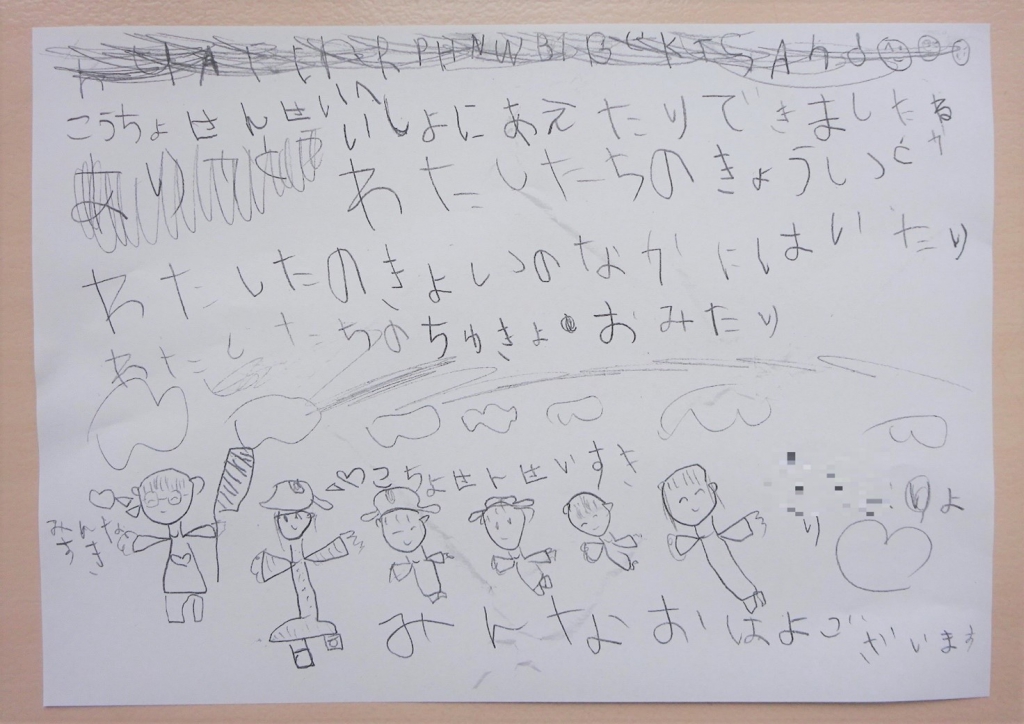 こうちょせんせいへ
いしょにあえたりできましたね
わたしたちのきょうしつとか
わたしたのきょしつのなかにはいたり
わたしたちのちゅきょおみたり
こちょせんせいすき
みんな
すき
より
みんなおはよございます